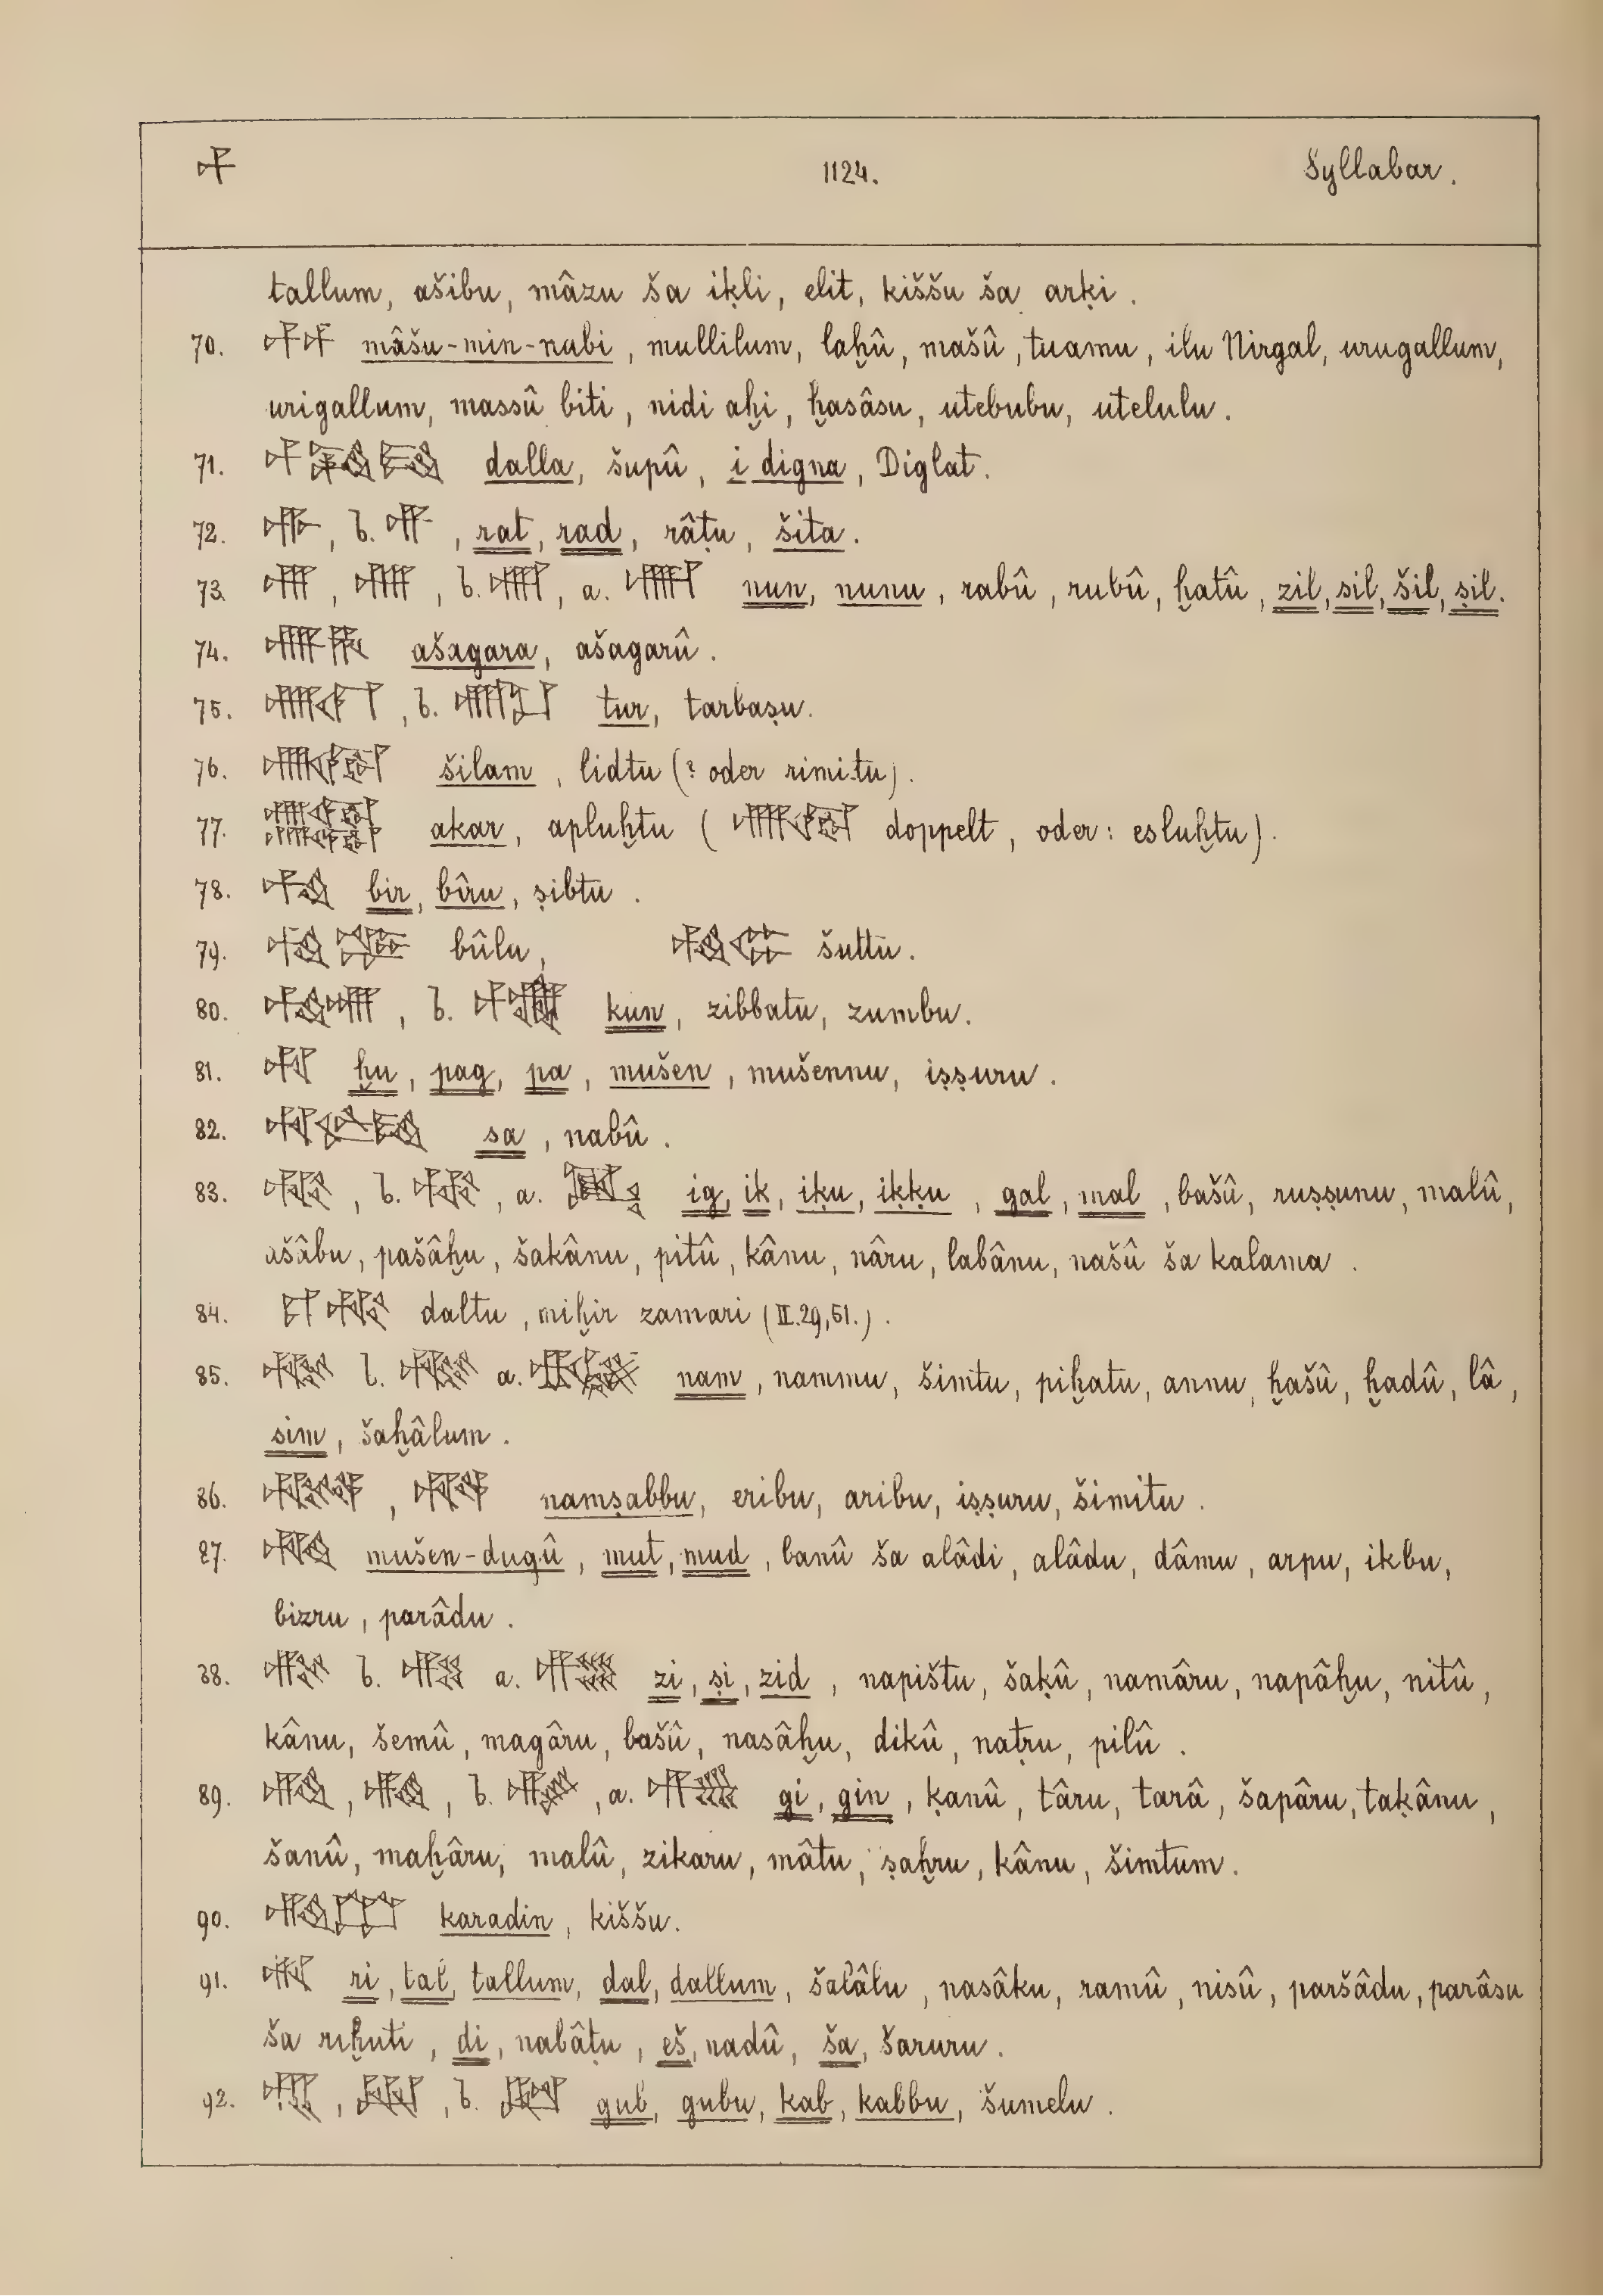 𒁇 1124. Syllabar.
tallum, ašibu, mâzu ša iḳli, elit, kiššu ša arḳi.
70. 𒁇𒁇 mâšu-min-nabi, mullilum, laḫû, mašû, tuamu, ilu Nirgal, urugallum,
urigallum, massû biti, nidi aḫi, ḫasâsu, utebubu, utelulu.
71. dalla, šupû, i digna, Diglat.
72. , b. , rat, rad, râṭu, šita.
73. , , b. , a. nun, nunu, rabû, rubû, ḫatû, zil, sil, šil, ṣil.
74. ašagara, ašagarû.
75. , b. tur, tarbaṣu.
76. šilam, lidtu (? oder rimitu).
77. akar, apluḫtu ( doppelt, oder: esluḫtu).
78. bir, bîru, ṣibtu.
79. bûlu, šuttu.
80. , b. kun, zibbatu, zumbu.
81. ḫu, pag, pa, mušen, mušennu, iṣṣuru.
82. sa, nabû.
83. , b. , a. ig, ik, iḳu, iḳḳu, gal, mal, bašû, ruṣṣunu, malû,
ašâbu, pašâḫu, šakânu, pitû, kânu, nâru, labânu, našû ša kalama.
84. daltu, miḫir zamari (II.29,51.).
85. b. a. nam, nammu, šimtu, piḫatu, annu, ḫašû, ḫadû, lâ,
sim, šaḫâlum.
86. , namṣabbu, eribu, aribu, iṣṣuru, šimitu.
87. mušen-dugû, mut, mud, banû ša alâdi, alâdu, dâmu, arpu, ikbu,
bizru, parâdu.
88. b. a. zi, ṣi, zid, napištu, šaḳû, namâru, napâḫu, nitû,
kânu, šemû, magâru, bašû, nasâḫu, dikû, naṭru, pilû.
89. , , b. , a. gi, gin, ḳanû, târu, tarâ, šapâru, taḳânu,
šanû, maḫâru, malû, zikaru, mâtu, ṣaḫru, kânu, šimtum.
90. karadin, kiššu.
91. ri, tal, tallum, dal, dallum, šalâlu, nasâku, ramû, nisû, paršâdu, parâsu
ša riḫuti, di, nabâṭu, eš, nadû, ša, šaruru.
92. , , b. gub, gubu, kab, kabbu, šumelu.